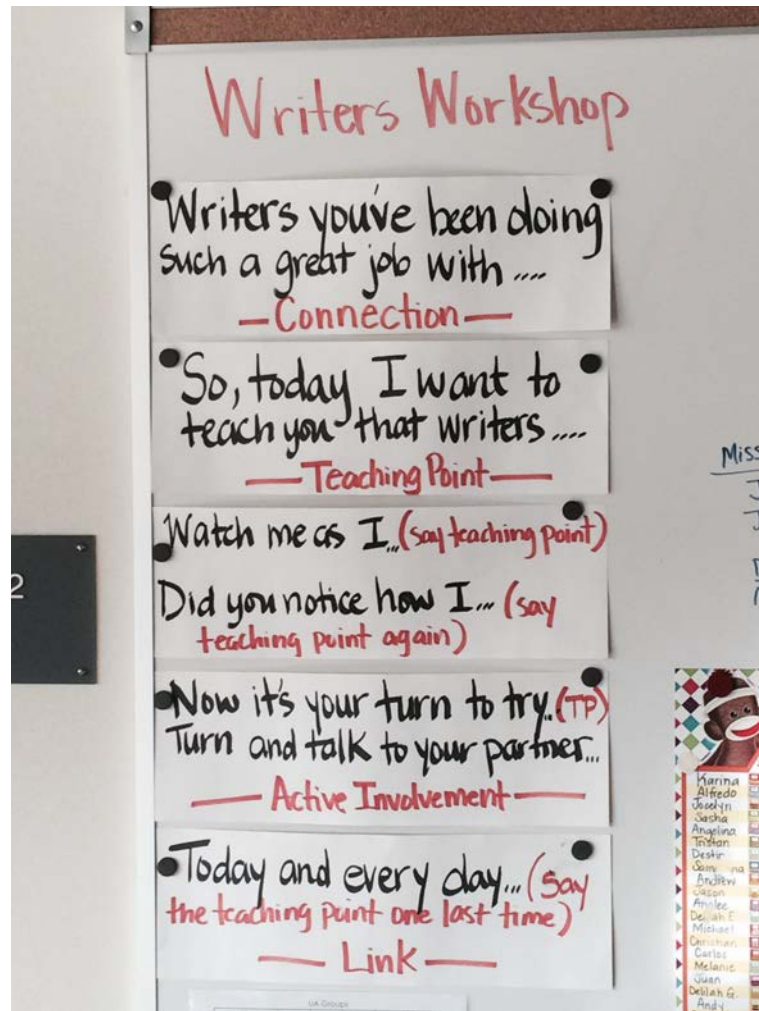 Writers Workshop
Writers you've been doing
such a great job with ....
— Connection —
So, today I want to
teach you that writers ....
— Teaching Point —
Watch me as I... (say teaching point)
Did you notice how I... (say
teaching point again)
Now it's your turn to try.. (TP)
Turn and talk to your partner...
— Active Involvement —
Today and every day... (say
the teaching point one last time)
— Link —
UA Groups
2
Miss
Karina
Alfredo
Jocelyn
Sasha
Angelina
Tristan
Destin
Andrew
Jason
Annlee
Delilah E
Michael
Christian
Carlos
Melanie
Juan
Delilah G.
Andy